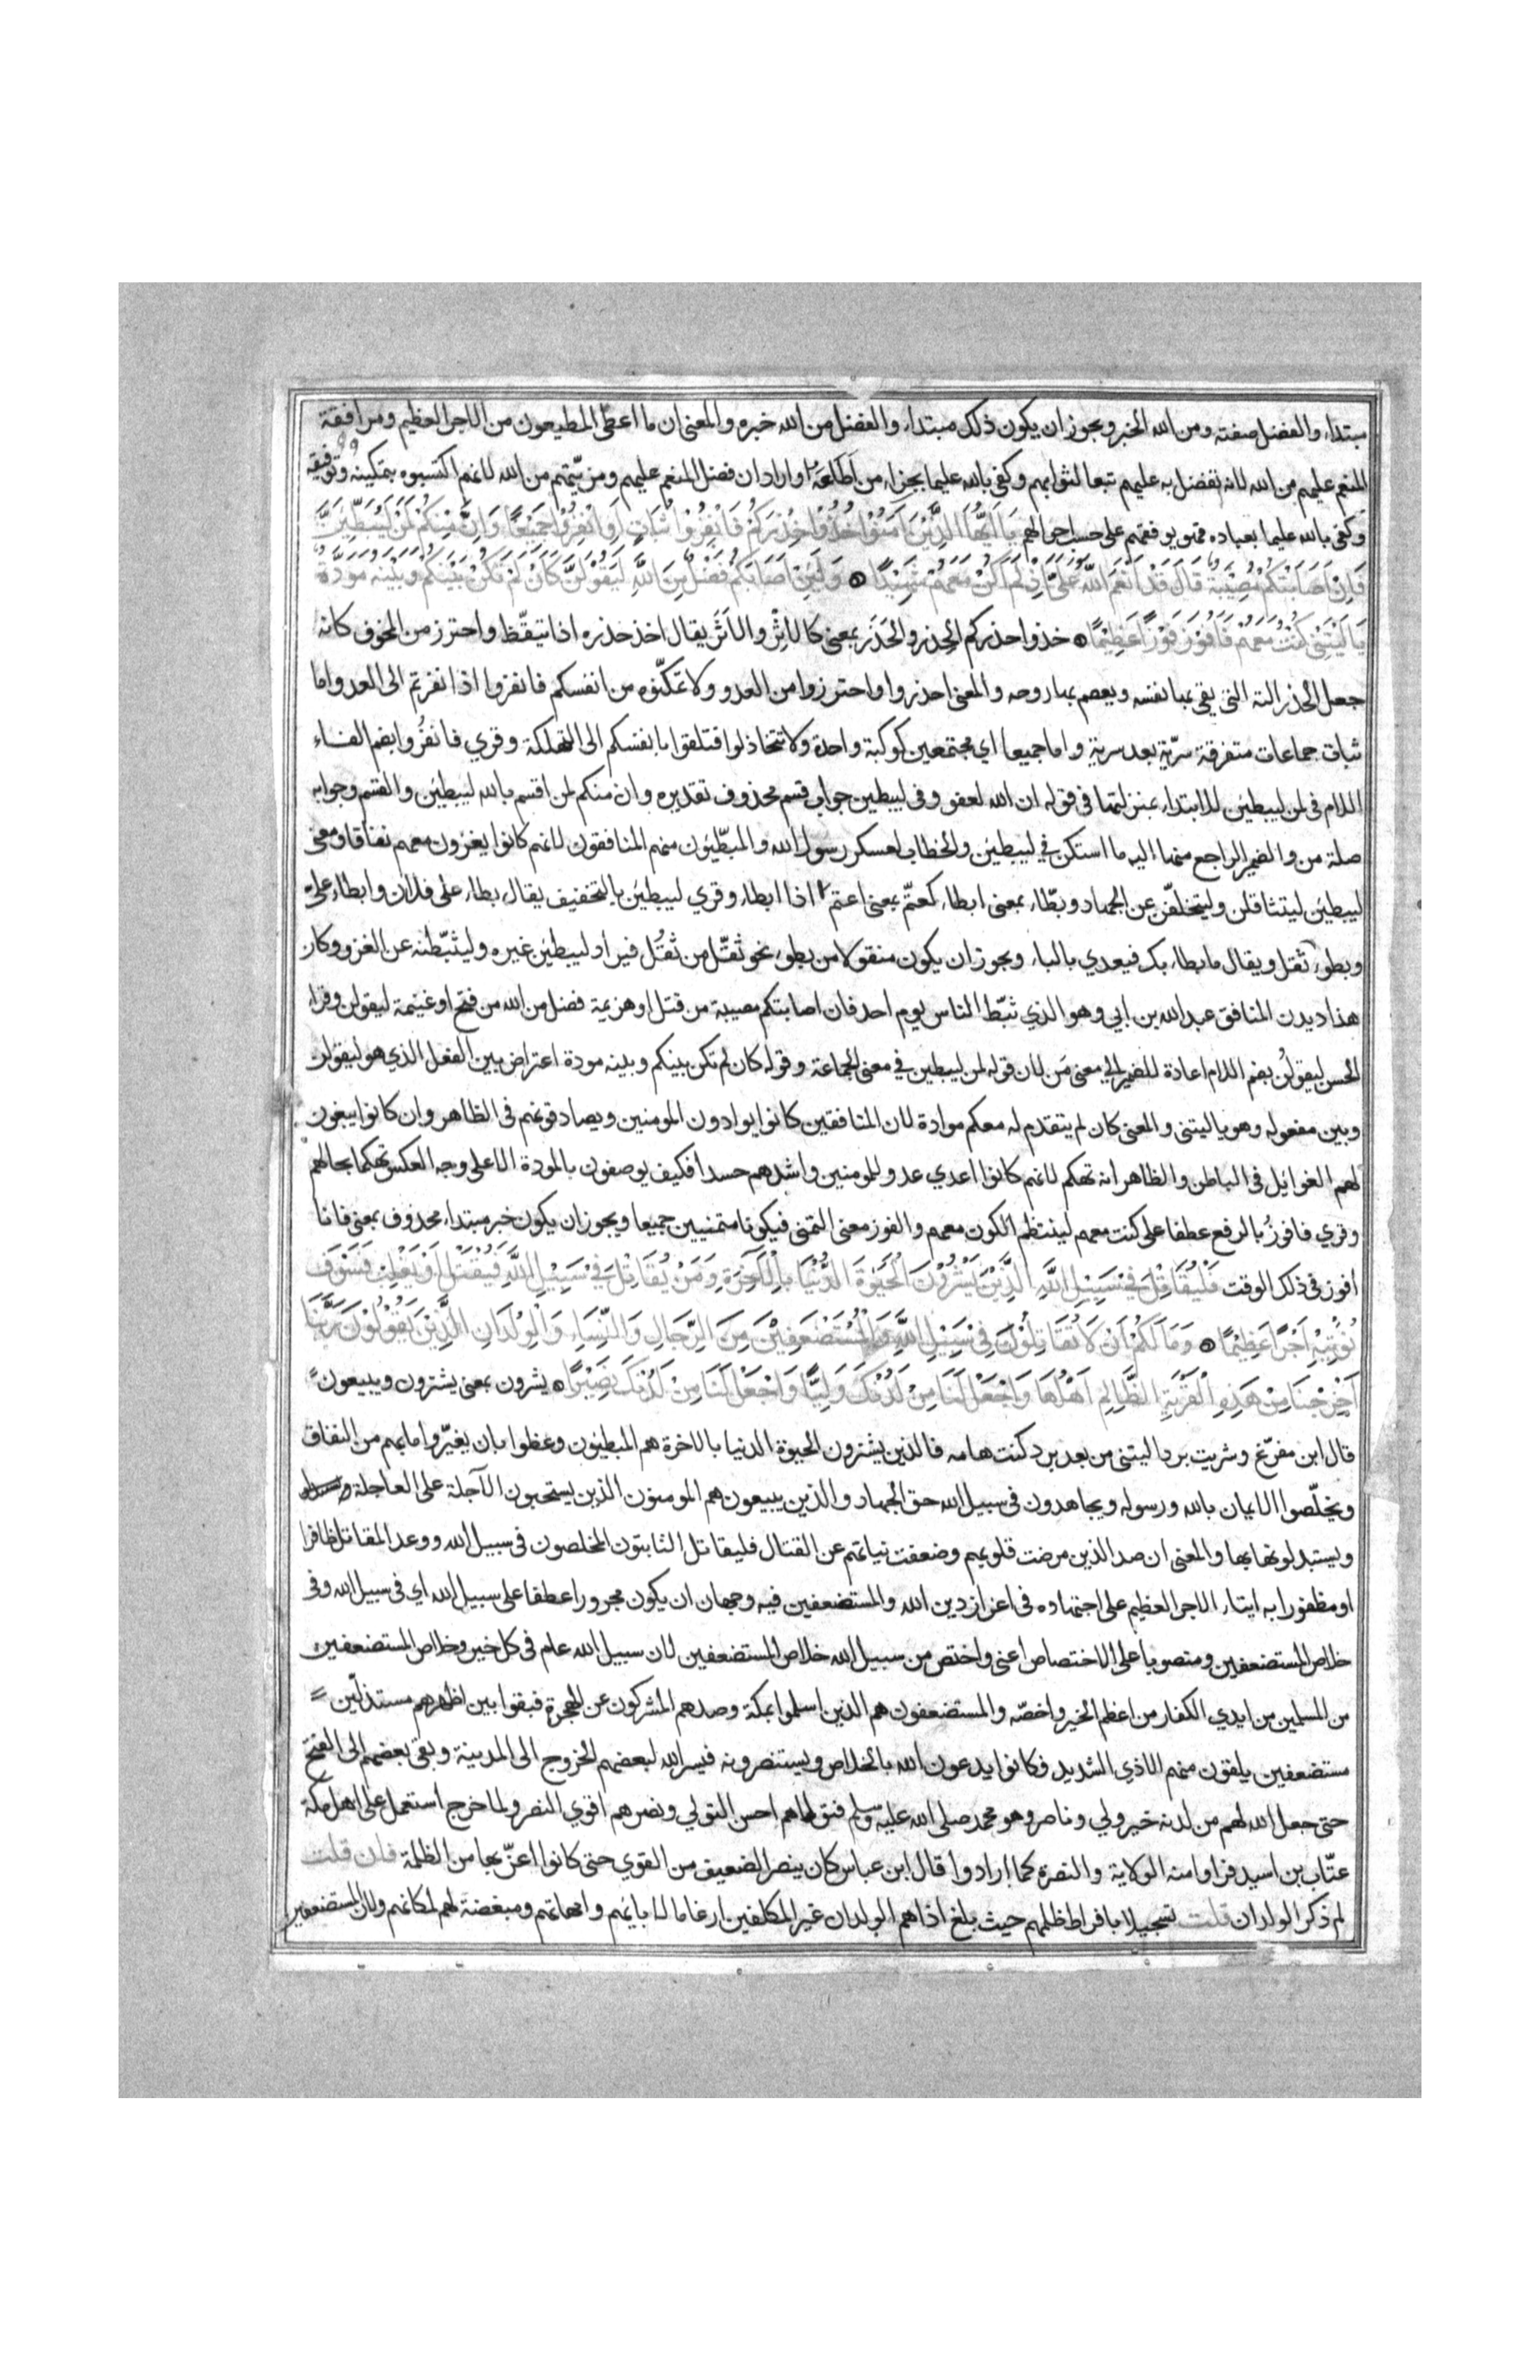 مبتداء والفضل صفته ومن الله الخبر ويجوز ان يكون ذلك مبتداء والفضل من الله خبره والمعنى ان ما اعطى المطيعون من الاجر العظيم ومرافقة
المنعم عليهم من الله لانه تفضل به عليهم تبعا لثوابهم وكفى بالله عليما بجزاء من اطاعه او اراد ان فضل المنعم عليهم ومزيتهم من الله لانهم اكتسبوه بتمكينه وتوفيقه
وكفى بالله عليما بعباده فهو يوفقهم على حسب احوالهم يَا اَيُّهَا الَّذِيْنَ اٰمَنُوْا خُذُوْا حِذْرَكُمْ فَانْفِرُوْا ثُبَاتٍ اَوِ انْفِرُوْا جَمِيْعًا وَاِنَّ مِنْكُمْ لَمَنْ لَيُبَطِّئَنَّ
فَاِنْ اَصَابَتْكُمْ مُصِيْبَةٌ قَالَ قَدْ اَنْعَمَ اللّٰهُ عَلَيَّ اِذْ لَمْ اَكُنْ مَعَهُمْ شَهِيْدًا ۞ وَلَئِنْ اَصَابَكُمْ فَضْلٌ مِنَ اللّٰهِ لَيَقُوْلَنَّ كَاَنْ لَمْ تَكُنْ بَيْنَكُمْ وَبَيْنَهُ مَوَدَّةٌ
يَا لَيْتَنِي كُنْتُ مَعَهُمْ فَاَفُوْزَ فَوْزًا عَظِيْمًا ۞ خذوا حذركم الحِذر والحَذَر بمعنى كالاِثْرِ والاَثَرَ يقال اخذ حذره اذا تيقّظ واحترز من المخوف كانه
جعل الحذر الته التي يقي بها نفسه ويعصم بها روحه والمعنى احذروا واحترزوا من العدو ولا تمكّنوه من انفسكم فانفروا اذا نفرتم الى العدو اما
ثبات جماعات متفرقة سرّية بعد سرية واما جميعا اي مجتمعين كوكبة واحدة ولا تتخاذلوا فتلقوا بانفسكم الى التهلكة وقري فانفُروا بضم الفاء
اللام في لمن ليبطئن للابتداء بمنزلتها في قوله ان الله لغفور وفي ليبطين جواب قسم محذوف تقديره وان منكم لمن اقسم بالله ليبطئن والقسم وجوابه
صلة من والضمير الراجع منها اليه ما استكن في ليبطين والخطاب لعسكر رسول الله والمبطّئون منهم المنافقون لانهم كانوا يغزون معهم نفاقا ومعنى
ليبطئن ليتثاقلن وليتخلفّن عن الجهاد وبطّاء بمعنى ابطاء كعتّم بمعنى اعتم اذا ابطاء وقري ليبطئن بالتخفيف يقال بطاء على فلان وابطاء على
وبطوء ثقل ويقال ما بطاء بك فيعدي بالباء ويجوز ان يكون منقولا من بطوء نحو ثقّل من ثقُل فيراد ليبطئن غيره وليثبّطنه عن الغزو وكان
هذا ديدن المنافق عبد الله بن ابي وهو الذي ثبّط الناس يوم احد فان اصابتكم مصيبة من قتل او هزيمة فضل من الله من فتح او غنيمة ليقولن وقراء
الحسن ليقولُن بضم اللام اعادة للضمير الي معنى مَن لان قوله لمن ليبطين في معنى الجماعة وقوله كان لم تكن بينكم وبينه مودة اعتراض بين الفعل الذي هو ليقولن
وبين مفعوله وهو يا ليتني والمعنى كان لم يتقدم له معكم موادة لان المنافقين كانوا يوادون المومنين ويصادقونهم في الظاهر وان كانوا يبغون
لهم الغوائل في الباطن والظاهر انه تهكم لانهم كانوا اعدي عدو للمومنين واشدهم حسدا فكيف يوصفون بالمودة الا على وجه العكس تهكما بحالهم
وقري فافوزُ بالرفع عطفا على كنت معهم لينتظم الكون معهم والفوز معنى التمني فيكونا متمنيين جميعا ويجوز ان يكون خبر مبتداء محذوف بمعنى فانا
افوز في ذلك الوقت فَلْيُقَاتِلْ فِيْ سَبِيْلِ اللّٰهِ الَّذِيْنَ يَشْرُوْنَ الْحَيٰوةَ الدُّنْيَا بِالْاٰخِرَةِ وَمَنْ يُقَاتِلْ فِيْ سَبِيْلِ اللّٰهِ فَيُقْتَلْ اَوْ يَغْلِبْ فَسَوْفَ
نُؤْتِيْهِ اَجْرًا عَظِيْمًا ۞ وَمَا لَكُمْ اَنْ لَا تُقَاتِلُوْنَ فِيْ سَبِيْلِ اللّٰهِ وَالْمُسْتَضْعَفِيْنَ مِنَ الرِّجَالِ وَالنِّسَاءِ وَالْوِلْدَانِ الَّذِيْنَ يَقُوْلُوْنَ رَبَّنَا
اَخْرِجْنَا مِنْ هٰذِهِ الْقَرْيَةِ الظَّالِمِ اَهْلُهَا وَاجْعَلْ لَنَا مِنْ لَدُنْكَ وَلِيًّا وَاجْعَلْ لَنَا مِنْ لَدُنْكَ نَصِيْرًا ۞ يشرون بمعنى يشترون ويبيعون
قال ابن مفرّغ وشريت بردا ليتني من بعد برد كنت هامه فالذين يشترون الحيوة الدنيا بالاخرة هم المبطيون وعظوا بان يغيّروا ما بهم من النفاق
ويخلّصوا الايمان بالله ورسوله ويجاهدون في سبيل الله حق الجهاد والذين يبيعون هم المومنون الذين يستحبون الآجلة على العاجلة
ويستبدلونها بها والمعنى ان صد الذين مرضت قلوبهم وضعفت نياتهم عن القتال فليقاتل الثابتون المخلصون في سبيل الله ووعد المقاتل ظافرا
او مظفورا به ايتاء الاجر العظيم على اجتهاده في اعزاز دين الله والمستضعفين فيه وجهان ان يكون مجرورا عطفا على سبيل الله اي في سبيل الله وفي
خلاص المستضعفين ومنصوبا على الاختصاص اعني واختص من سبيل الله خلاص المستضعفين لان سبيل الله عام في كل خير وخلاص المستضعفين
من المسلمين من ايدي الكفار من اعظم الخير واخصّه والمستضعفون هم الذين اسلموا بمكة وصدهم المشركون عن الهجرة فبقوا بين اظهرهم مستذلّين
مستضعفين يلقون منهم الاذي الشديد فكانوا يدعون الله بالخلاص ويستنصرونه فيسر الله لبعضهم الخروج الى المدينة وبقي بعضهم الى الفتح
حتى جعل الله لهم من لدنه خير ولي وناصر وهو محمد صلى الله عليه وسلم فتولاهم احسن التولي ونصرهم اقوي النصر ولما خرج استعمل على اهل مكة
عتّاب بن اسيد فراوا منه الولاية والنصرة كما ارادوا قال ابن عباس كان ينصر الضعيف من القوي حتى كانوا اعزّ بها من الظلمة فان قلت
لم ذكر الولدان قلت تسجيلا بافراط ظلمهم حيث بلغ اذاهم الولدان غير المكلفين ارغاما لابائهم وامهاتهم ومبغضة لهم لمكانهم ولان المستضعفين